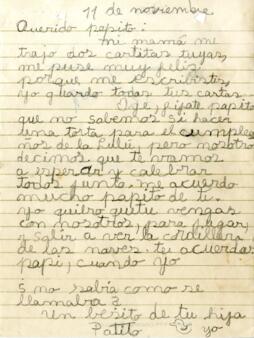 11 de noviembre
Querido papito:
mi mamá me
trajo dos cartitas tuyas,
me puse muy feliz,
porque me escribistes,
yo guardo todas tus cartas.
Oye, fijate papito
que no sabemos si hacer
una torta para el cumplea
ños de la Lulú, pero nosotro
decimos que te vamos
a esperar y calebrar
todos junto. me acuerdo
mucho papito de ti.
yo quiero que tu vengas
con nosotros, para jugar,
y salir a ver la cordillera
de las naves te acuerdas
papi, cuando yo
no sabia como se
llamaba?
Un besito de tu hija
Patito yo